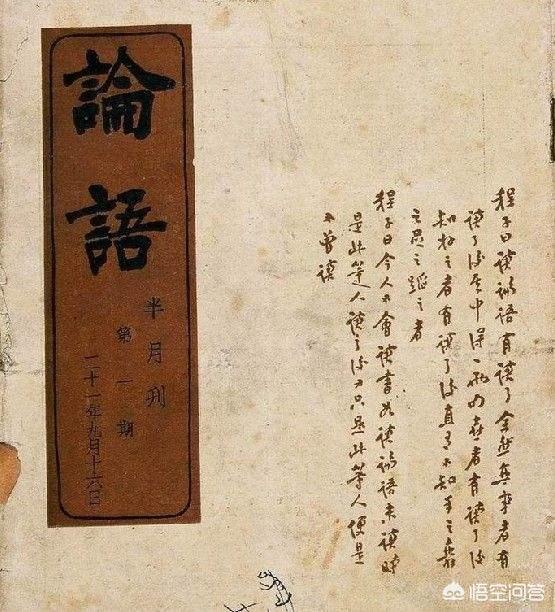 論語
半月刊
第一期
二十一年九月十六日
程子曰讀論語有讀了全然無事者有
讀了後其中得一兩句喜者有讀了後
知好之者有讀了後直有不知手之舞
之足之蹈之者
程子曰今人不會讀書如讀論語未讀時
是此等人讀了後又只是此等人便是
不曾讀
悟空问答